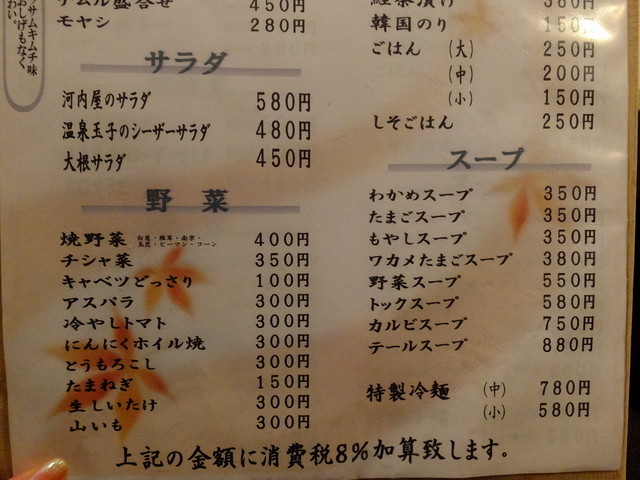 サムキムチ味
おしげもなく
わい。
ナムル盛合せ 450円
モヤシ 280円
サラダ
河内屋のサラダ 580円
温泉玉子のシーザーサラダ 480円
大根サラダ 450円
野菜
焼野菜 白葱・椎茸・南京・玉葱・ピーマン・コーン 400円
チシャ菜 350円
キャベツどっさり 100円
アスパラ 300円
冷やしトマト 300円
にんにくホイル焼 300円
とうもろこし 300円
たまねぎ 150円
生しいたけ 300円
山いも 300円
380円
韓国のり 150円
ごはん (大) 250円
(中) 200円
(小) 150円
しそごはん 250円
スープ
わかめスープ 350円
たまごスープ 350円
もやしスープ 350円
ワカメたまごスープ 380円
野菜スープ 550円
トックスープ 580円
カルビスープ 750円
テールスープ 880円
特製冷麺 (中) 780円
(小) 580円
上記の金額に消費税8%加算致します。